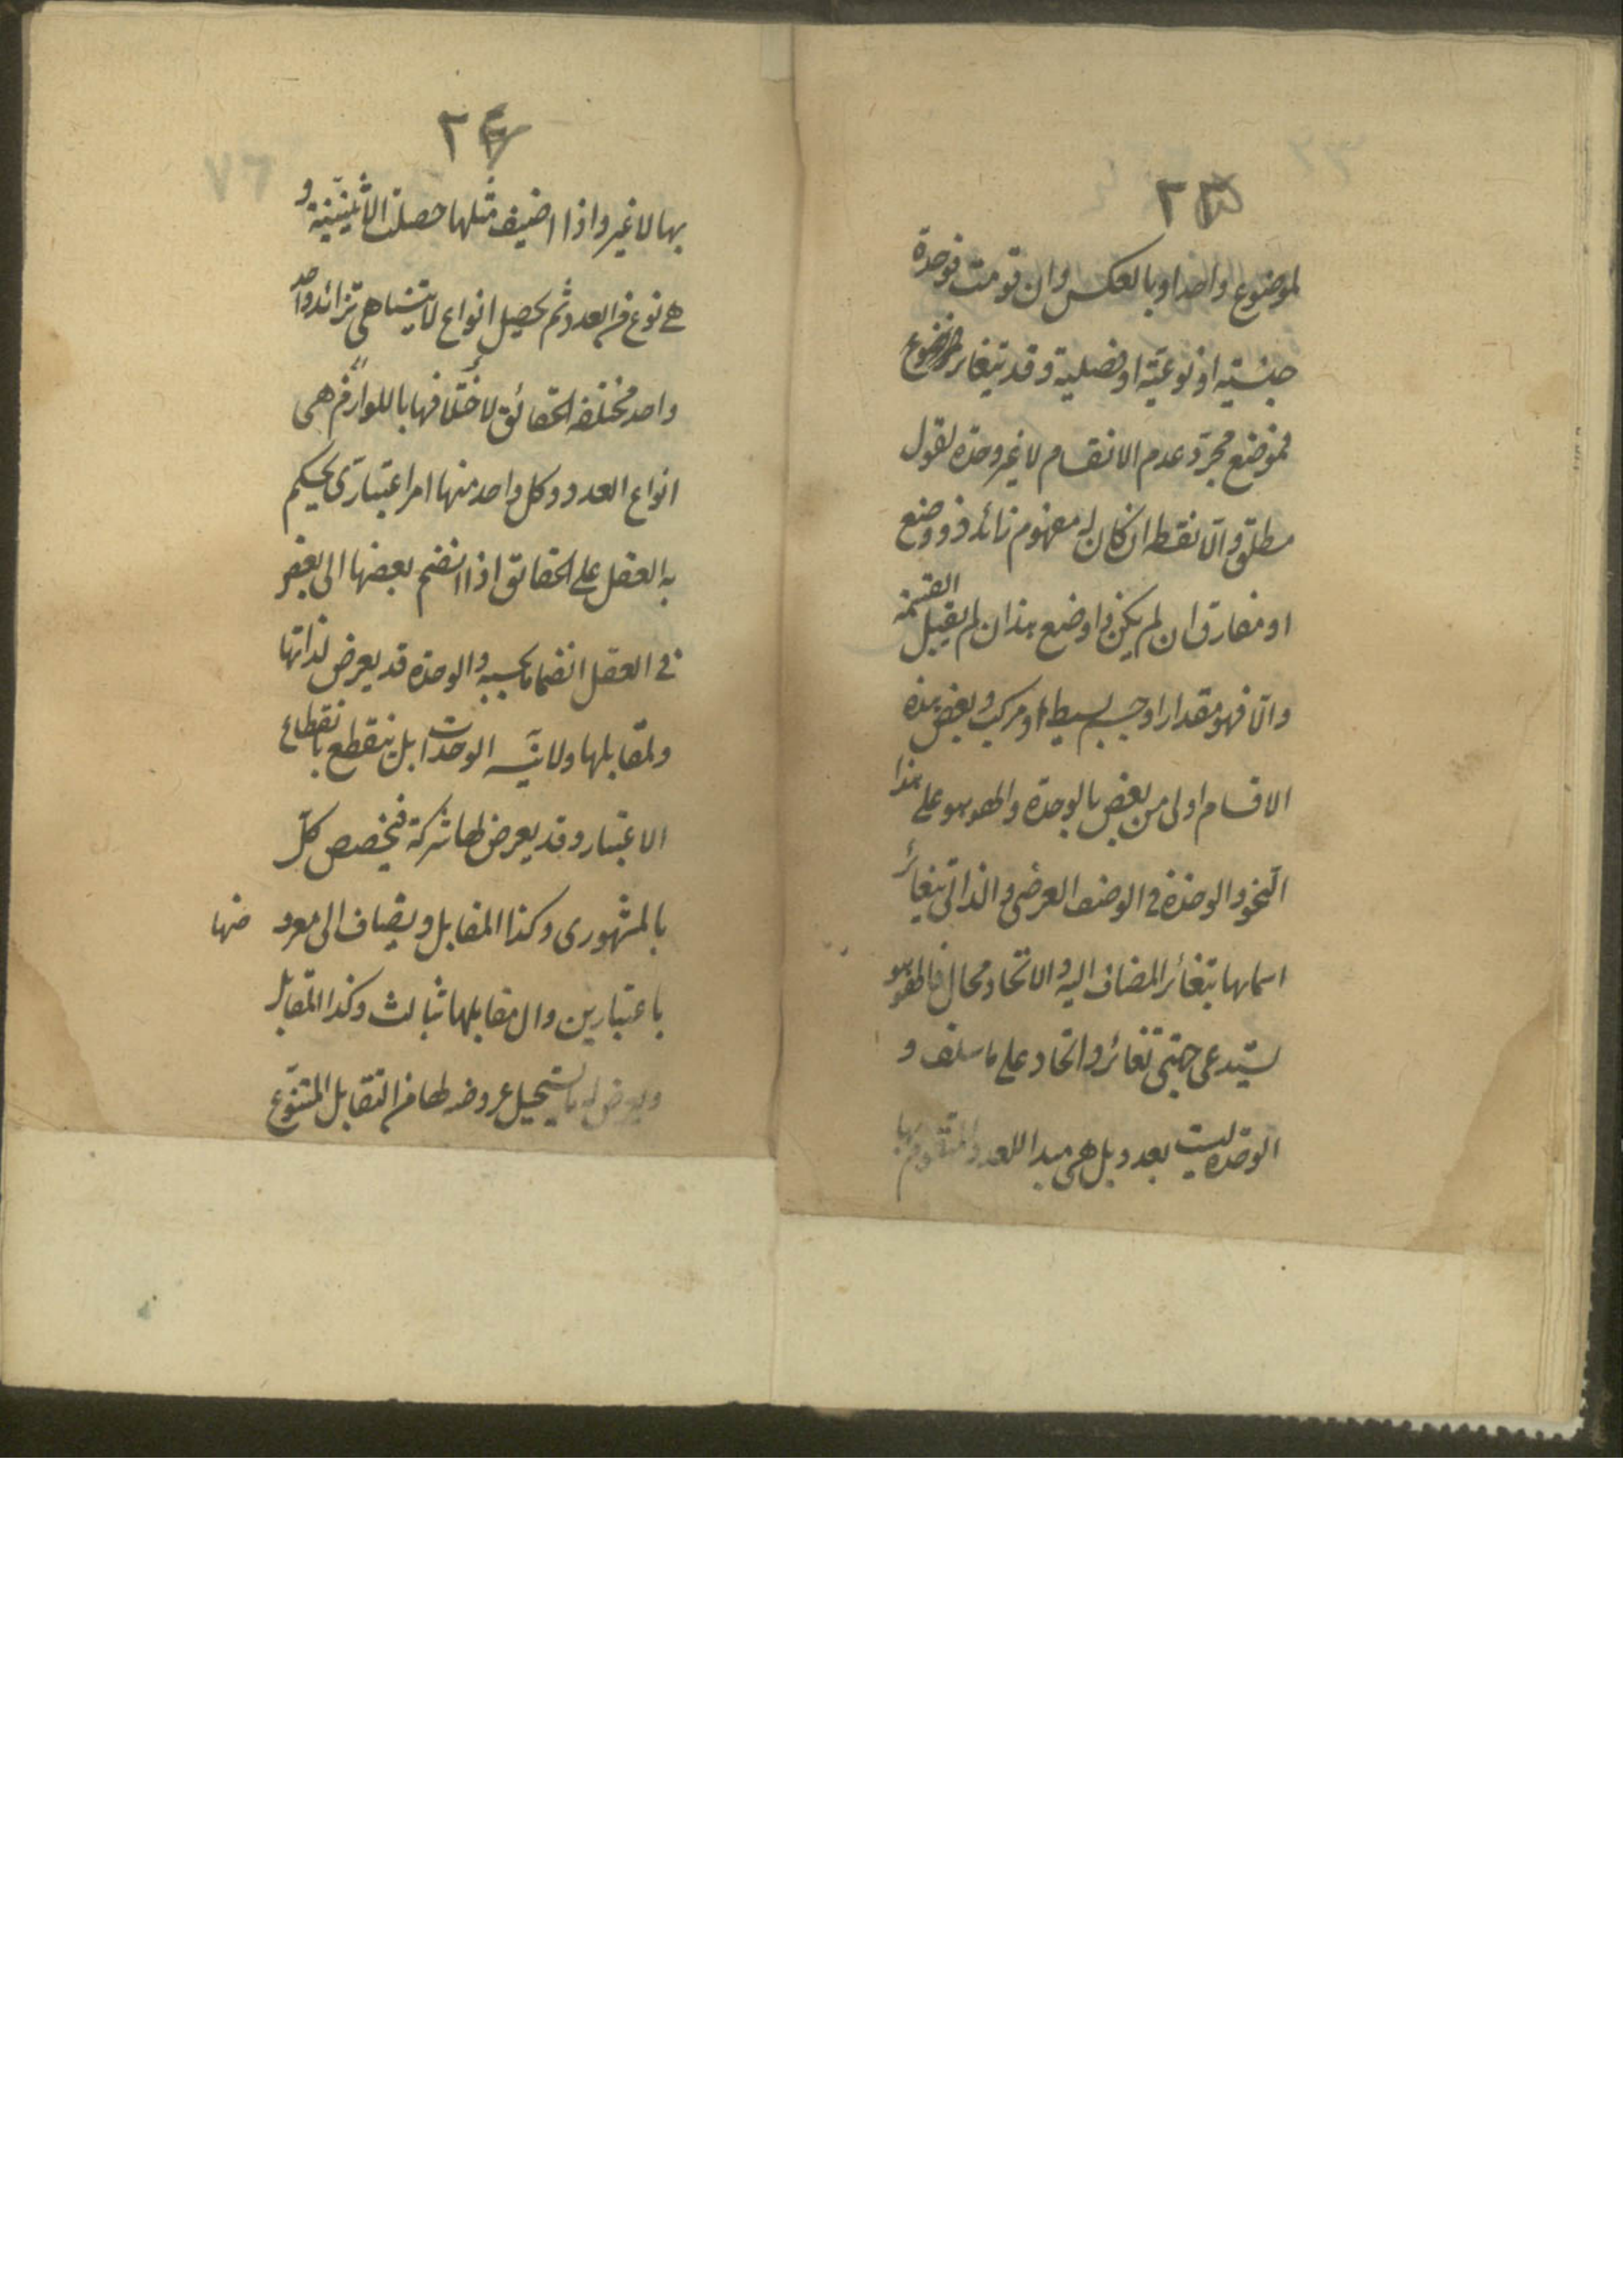 ٢٣
لموضوع واحد او بالعكس وان قومت فوحدة
جنسية او نوعية او فصلية وقد تتغاير موضوع
فموضوع مجرد عدم الانقسام لا غير وحدة لقول
مطلق والا نقطة ان كان له مفهوم زائد ذو وضع
او مفارق ان لم يكن ذا وضع هذا ان لم يقبل القسمة
والا فهو مقدار او جسم بسيط او مركب وبعض هذه
الاقسام اولى من بعض بالوحدة والهو هو على هذا
النحو والوحدة في الوصف العرضي والذاتي يتغاير
اسماؤها بتغاير المضاف اليه والاتحاد محال فالهو هو
يستدعي جهتي تغاير واتحاد على ما سلف و
الوحدة ليست بعدد بل هي مبدا للعدد المتقوم بها
٢٤
٧٦
بها لا غير واذا اضيف مثلها حصلت الاثنينية و
هي نوع من العدد ثم يحصل انواع لا يتناهى بتزائد واحد
واحد مختلفة الحقائق لاختلافها باللوازم هي
انواع العدد وكل واحد منها امر اعتباري يحكم
به العقل على الحقائق اذا انضم بعضها الى بعض
في العقل انضماما بحسبه والوحدة قد يعرض لذاتها
ولمقابلها ولا يتسـ الوحدات بل ينقطع بانقطاع
الاعتبار وقد يعرض لها شركة فيخصص كل
بالمشهوري وكذا المقابل ويضاف الى معرو ضها
باعتبارين وال مقابلها ثبالث وكذا المقابل
ويعرض له ما يستحيل عروضه لها من التقابل المتنوع